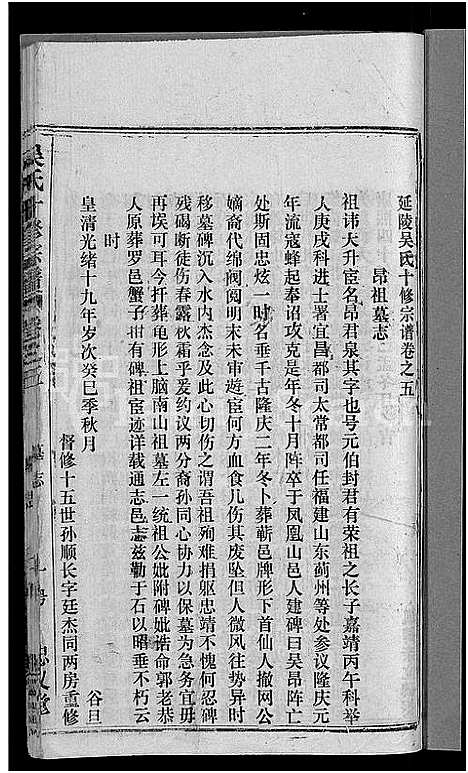 延陵吴氏十修宗谱卷之五
昂祖墓志
祖讳大升宦名昂君泉其字也号元伯封君有荣祖之长子嘉靖丙午科举
人庚戌科进士署宜昌都司太常都司任福建山东蓟州等处参议隆庆元
年流寇蜂起奉诏攻克是年冬十月阵卒于凤凰山邑人建碑曰吴昂阵亡
处斯固忠炫一时名垂千古隆庆二年冬卜葬蕲邑牌形下首仙人撤网公
嫡裔代绵阀阅明末未审遊宦何方血食几伤其废坠但人微风往势异时
移墓碑沉入水内杰念及此心切伤之谓吾祖殉难捐躯忠靖不愧何忍碑
残碣断徒伤春露秋霜乎爰约议两分裔孙同心协力以保墓为急务宜毋
再埃可耳今扦葬龟形上脑南山祖墓左一统祖公妣附碑妣诰命郭老恭
人原葬罗邑蟹子地有碑祖宦迹详载通志邑志兹勒于石以昭垂不朽云
时
皇清光绪十九年岁次癸巳季秋月
谷旦
督修十五世孙顺长字廷杰同两房重修
吴氏十修宗谱
卷之五
墓志